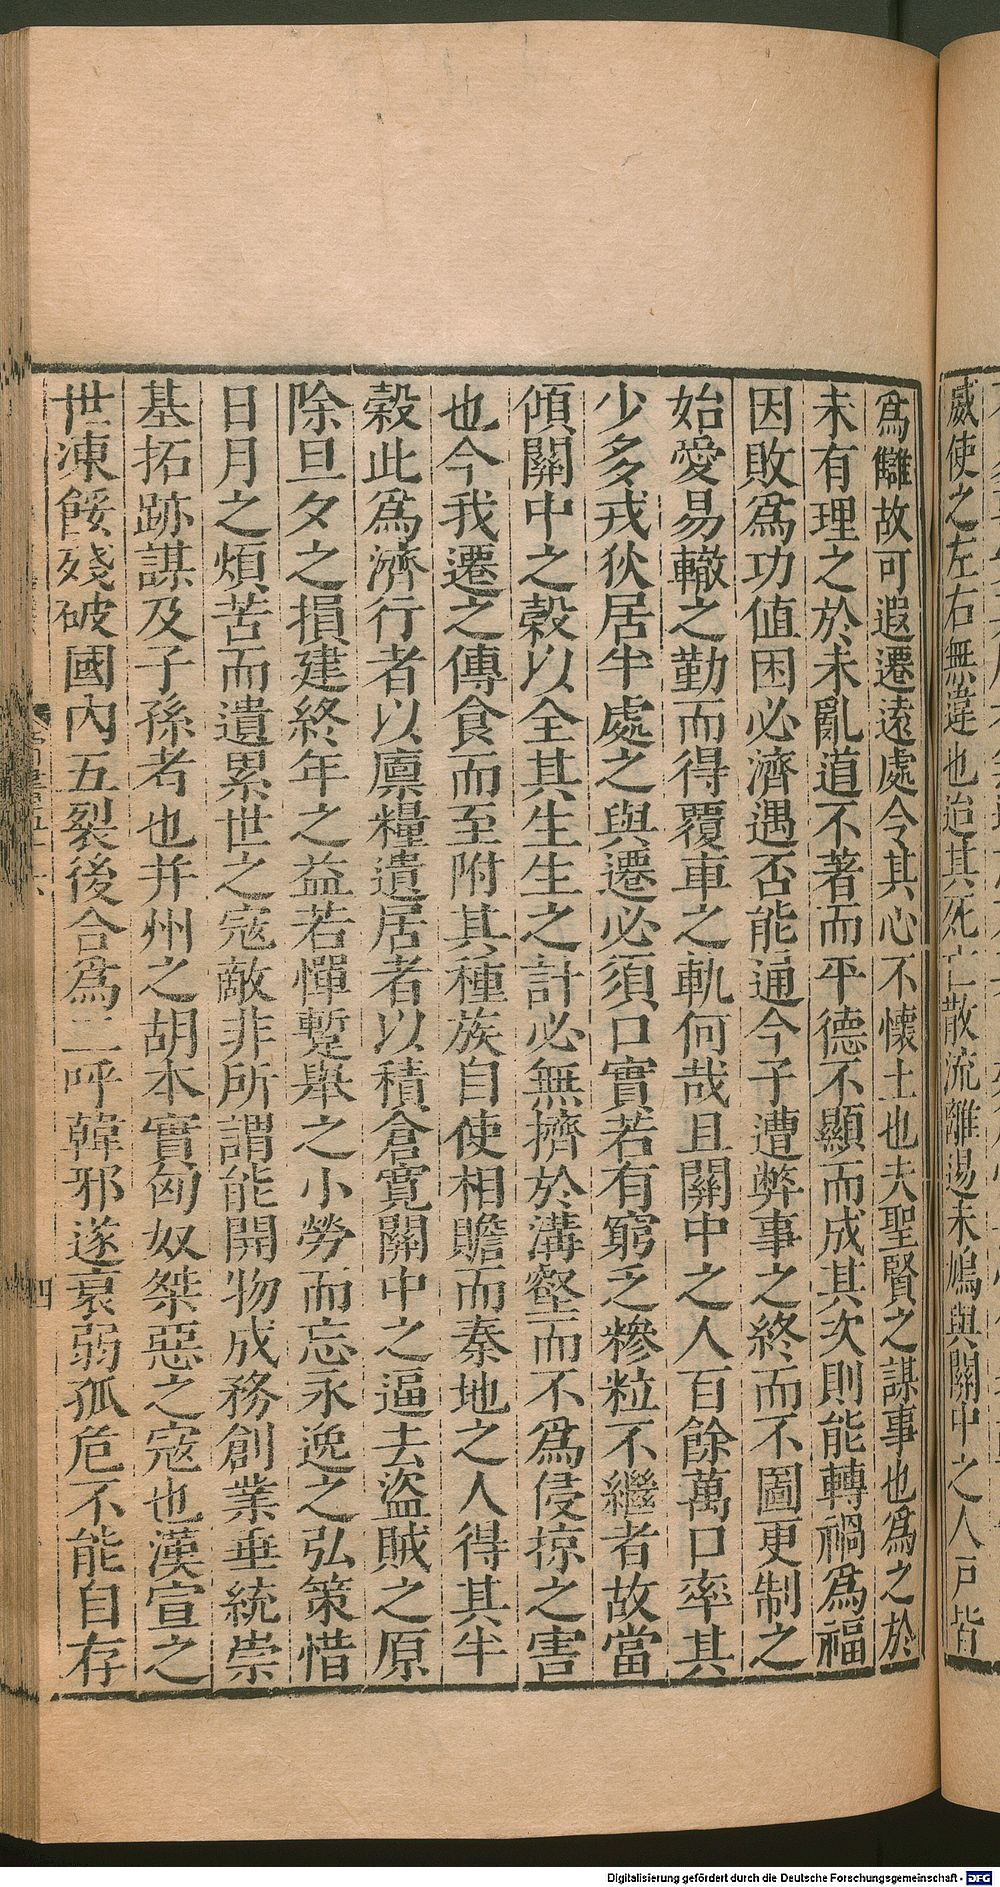 威使之左右無違也迨其死亡散流離逷未鳩與關中之人戶皆
爲讎故可遐遷遠處令其心不懷土也夫聖賢之謀事也爲之於
未有理之於未亂道不著而平德不顯而成其次則能轉禍爲福
因敗爲功値困必濟遇否能通今子遭弊事之終而不圖更制之
始愛易轍之勤而得覆車之軌何哉且關中之人百餘萬口率其
少多戎狄居半處之與遷必須口實若有窮乏糝粒不繼者故當
傾關中之穀以全其生生之計必無擠於溝壑而不爲侵掠之害
也今我遷之傳食而至附其種族自使相贍而秦地之人得其半
穀此爲濟行者以廩糧遺居者以積倉寬關中之逼去盜賊之原
除旦夕之損建終年之益若憚蹔舉之小勞而忘永逸之弘策惜
日月之煩苦而遺累世之寇敵非所謂能開物成務創業垂統崇
基拓跡謀及子孫者也并州之胡本實匈奴桀惡之寇也漢宣之
世凍餒殘破國內五裂後合爲二呼韓邪遂衰弱孤危不能自存
四
Digitalisierung gefördert durch die Deutsche Forschungsgemeinschaft - DFG